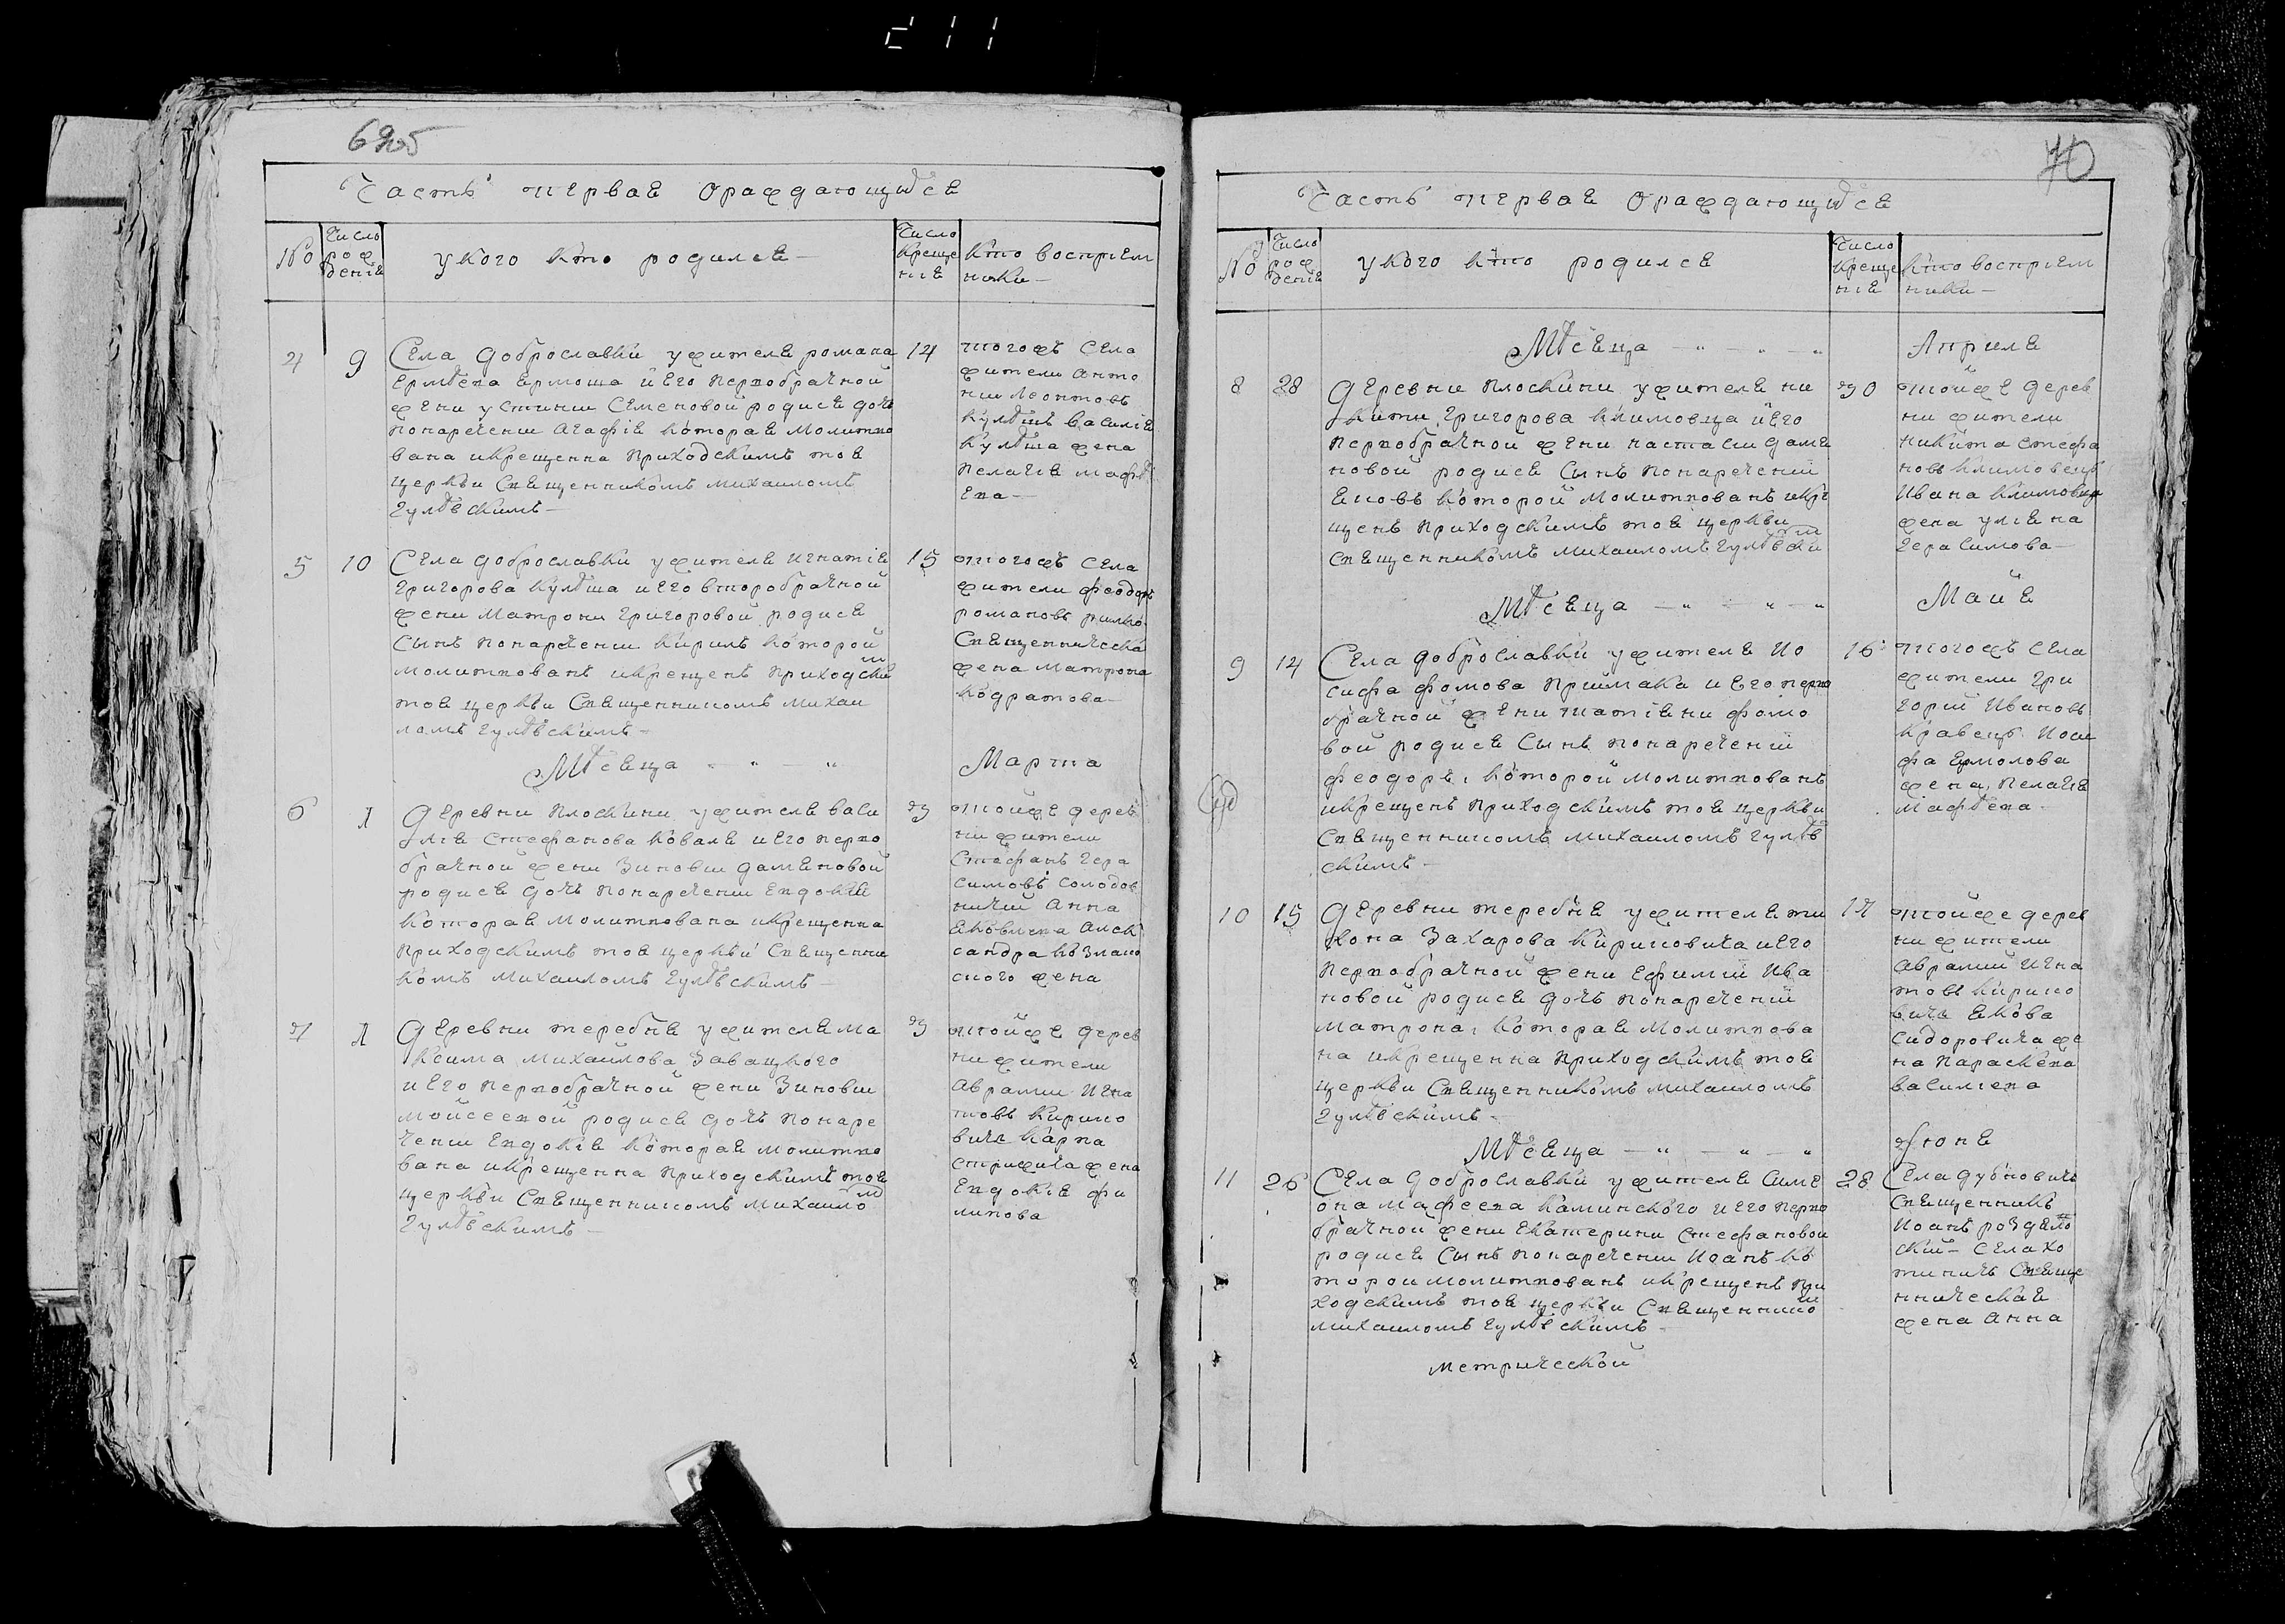 695
Часть первая ораждающихся
№
Число рождения
у кого кто родился
Число крещения
кто восприемники
4
9
14
Села доброславки ужителя романа
Ермѣева Ермоша и его первобрачной
жени устинии Семеновой родися дочъ
понаречении Агафія которая молитво
вана икрещенна приходскимъ тоя
церкви Священникомъ михаиломъ
гулѣвскимъ
тогожъ села
жители анто
ний леонтовъ
Кулѣшъ василія
Кулѣша жена
пелагія мафѣ
ева
5
10
15
Села доброславки ужителя игнатія
григорова кулѣша иего второбрачной
жени матрони григоровой родися
сынъ понаречении кирилъ которой
молитвованъ икрещенъ приходским
тоя церкви Священникомъ михаи
ломъ гулѣвскимъ
тогожъ села
жители феодоръ
романовъ
Священническа
жена матрона
кодратова
Мѣсяца Марта
6
1
3
Деревни плоскини ужителя васи
лія стефанова коваля иего перво
брачной жени зиновии дамяновой
родися дочъ понаречении Евдокія
которая молитвована икрещенна
приходскимъ тоя церкви Священни
комъ михаиломъ гулѣвскимъ
тойже дерев
ни жители
стефанъ гера
симовъ солодов
ничий анна
яковлева алек
сандра козлов
ского жена
7
1
3
Деревни теребня ужителя ма
ксима михайлова завацкого
иего первобрачной жени зиновии
мойсеевой родися дочъ понаре
чении Евдокія которая молитво
вана икрещенна приходскимъ тоя
церкви Священникомъ михаило
гулѣвскимъ
тойже дерев
ни жители
аврамий игна
товъ кирило
вичъ карпа
жена
Евдокія фи
липова
70
Часть первая ораждающихся
№
Число рождения
у кого кто родился
Число крещения
кто восприемники
Мѣсяца Априля
8
28
30
Деревни плоскини ужителя ни
кити григорова климовца иего
первобрачной жени настасии дамя
новой родися сынъ понаречении
яковъ которой молитвованъ икре
щенъ приходскимъ тоя церкви
священникомъ михаиломъ гулѣвским
тойже дерев
ни жители
никита стефа
новъ климовецъ
ивана климовца
жена уліяна
герасимова
Мѣсяца Майя
9
14
16
Села доброславки ужителя ио
сифа фомова приймака иего перво
брачной жени татіяни фомо
вой родися сынъ понаречении
феодоръ, которой молитвованъ
икрещенъ приходскимъ тоя церкви
Священникомъ михаиломъ гулѣв
скимъ
тогожъ села
жители гри
горий ивановъ
кравецъ иоси
фа ермолова
жена, пелагія
мафѣева
10
15
17
Деревни теребня ужителя ти
хона захарова кириловича иего
первобрачной жени ефимии ива
новой родися дочъ понаречении
матрона, которая молитвова
на икрещенна приходскимъ тоя
церкви Священникомъ михаиломъ
гулѣвскимъ
тойже дерев
ни жители
аврамий игна
товъ кирило
вичъ якова
сидоровича же
на параскева
василіева
Мѣсяца Июня
11
26
28
Села доброславки ужителя симе
она мафеева каминского иего перво
брачной жени екатерини стефановой
родися сынъ понаречении иоанъ ко
торой молитвованъ икрещенъ при
ходскимъ тоя церкви Священнико
михаиломъ гулѣвскимъ
Села дубновичъ
Священникъ
иоанъ роздяло
ский села хо
тиничъ Свяще
нническая
жена анна
метрической